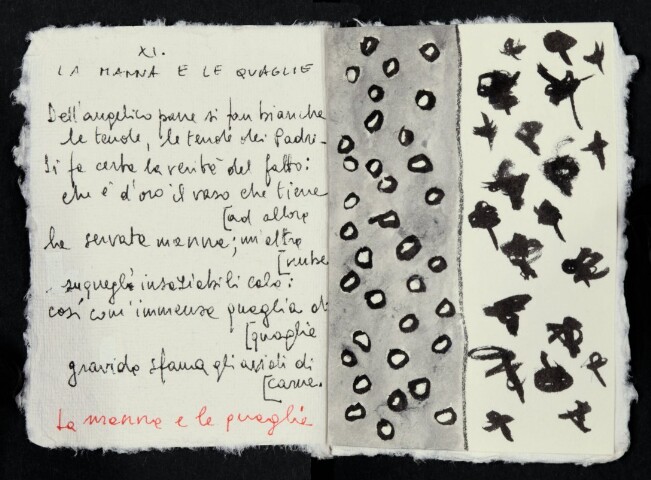 XI.
LA MANNA E LE QUAGLIE
Dell'angelico pane si fan bianche
le tende, le tende dei Padri.
Si fa certa la verità del fatto:
che è d'oro il vaso che tiene
[ad allora
ha servata manna; un'altra
[nube
su quegli insaziabili calò:
così com'immensa quaglia di
[quaglie
gravida sfama gli avidi di
[carne.
La manna e le quaglie